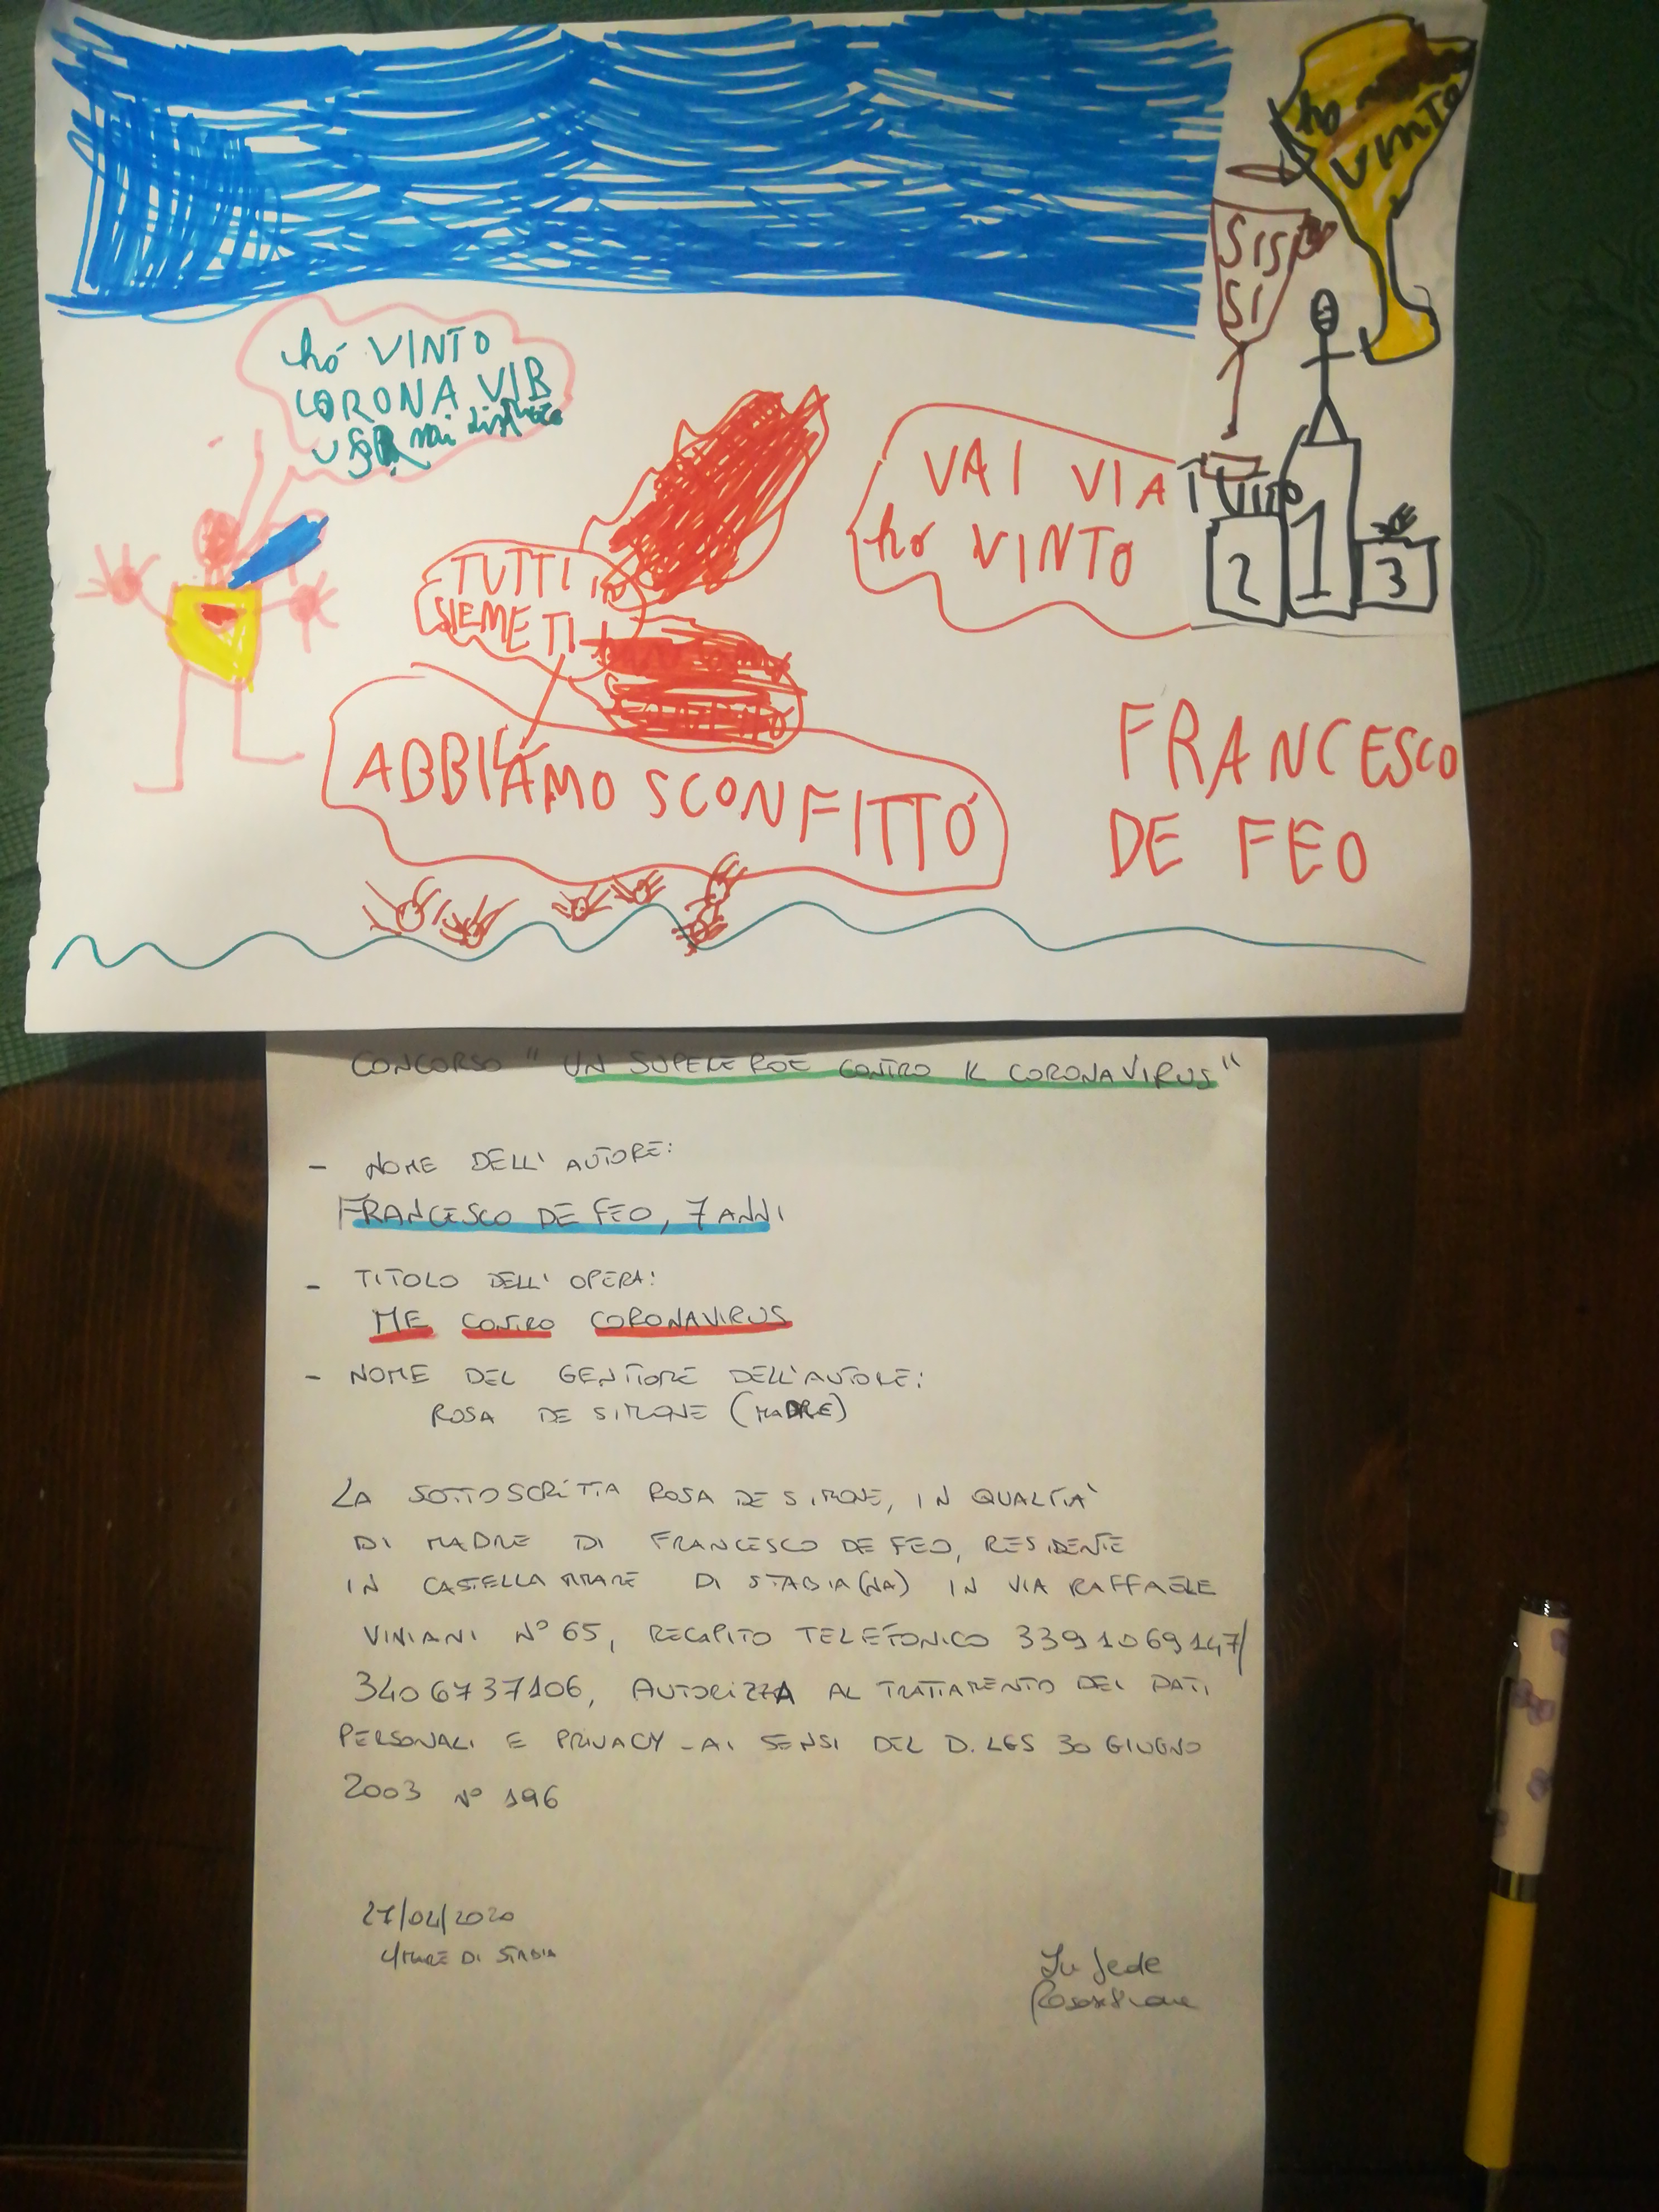 ho
VINTO
SISI
SI
hó VINTO
CORONA VIR
TUTTI IN
SIEME TI
VAI VIA
hó VINTO
2
1
3
ABBIAMO SCONFITTO
FRANCESCO
DE FEO
CONCORSO "UN SUPEREROE CONTRO IL CORONAVIRUS"
- NOME DELL'AUTORE:
FRANCESCO DE FEO, 7 ANNI
- TITOLO DELL'OPERA:
ME CONTRO CORONAVIRUS
- NOME DEL GENITORE DELL'AUTORE:
ROSA DE SIMONE (MADRE)
LA SOTTOSCRITTA ROSA DE SIMONE, IN QUALITA'
DI MADRE DI FRANCESCO DE FEO, RESIDENTE
IN CASTELLAMMARE DI STABIA (NA) IN VIA RAFFAELE
VIVIANI N° 65, RECAPITO TELEFONICO 3391069147/
3406737106, AUTORIZZA AL TRATTAMENTO DEI DATI
PERSONALI E PRIVACY - AI SENSI DEL D.LGS 30 GIUGNO
2003 N° 196
27/04/2020
C/MARE DI STABIA
In fede